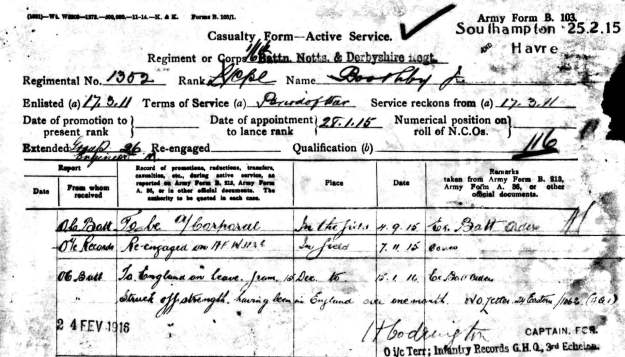 (1091)-Wt. W2020-1272.-400,000.-11-14.-K. & K. Forms B. 103/1.
Army Form B. 103.
Casualty Form-Active Service. ✓
Southampton 25.2.15
AND Havre
Regiment or Corps 1/6th Battn. Notts. & Derbyshire Regt.
Regimental No. 1302 Rank L/Cpl Name Boothby J.
Enlisted (a) 17.3.11 Terms of Service (a) Service reckons from (a) 17.3.11
Date of promotion to present rank } Date of appointment to lance rank } 28.1.15 Numerical position on roll of N.C.Os. }
Extended Group 26 Re-engaged Qualification (b) 116
Engineer
Report
Date
From whom received
Record of promotions, reductions, transfers, casualties, etc., during active service, as reported on Army Form B. 213, Army Form A. 36, or in other official documents. The authority to be quoted in each case.
Place
Date
Remarks
taken from Army Form B. 213, Army Form A. 36, or other official documents.
O.C. Batt To be a/Corporal In the field 4.9.15 Ex Batt Orders
O i/c Records Re-engaged on In field 7.11.15
O.C. Batt To England on leave from 15 Dec 15 15.1.16 Ex Batt Orders
" Struck off strength, having been in England over one month.
24 FEV 1916
CAPTAIN. FOR.
O i/c Terr; Infantry Records G.H.Q., 3rd Echelon.